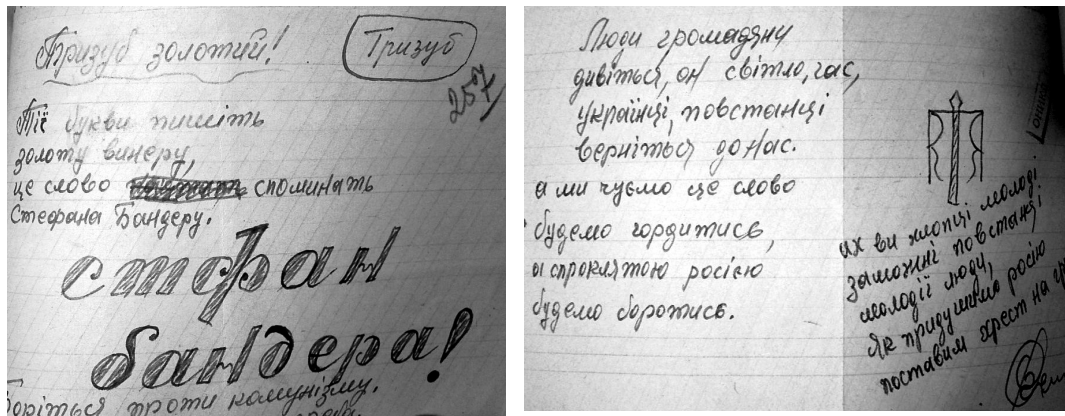 Тризуб золотий!
Тризуб
257
Тії букви пишіть
золоту винеру,
це слово споминать
Стефана Бандеру.
стфан
бандера!
боріться проти комунізму.
Люди громадяни
дивіться, он світло, час,
українці, повстанці
верніться до нас.
а ми чуємо це слово
будемо гордитись,
и спроклятою росією
будемо боротись.
ох ви хлопці молоді
заможні повстанці
молодії люду,
Як придушимо росію
поставим хрест на